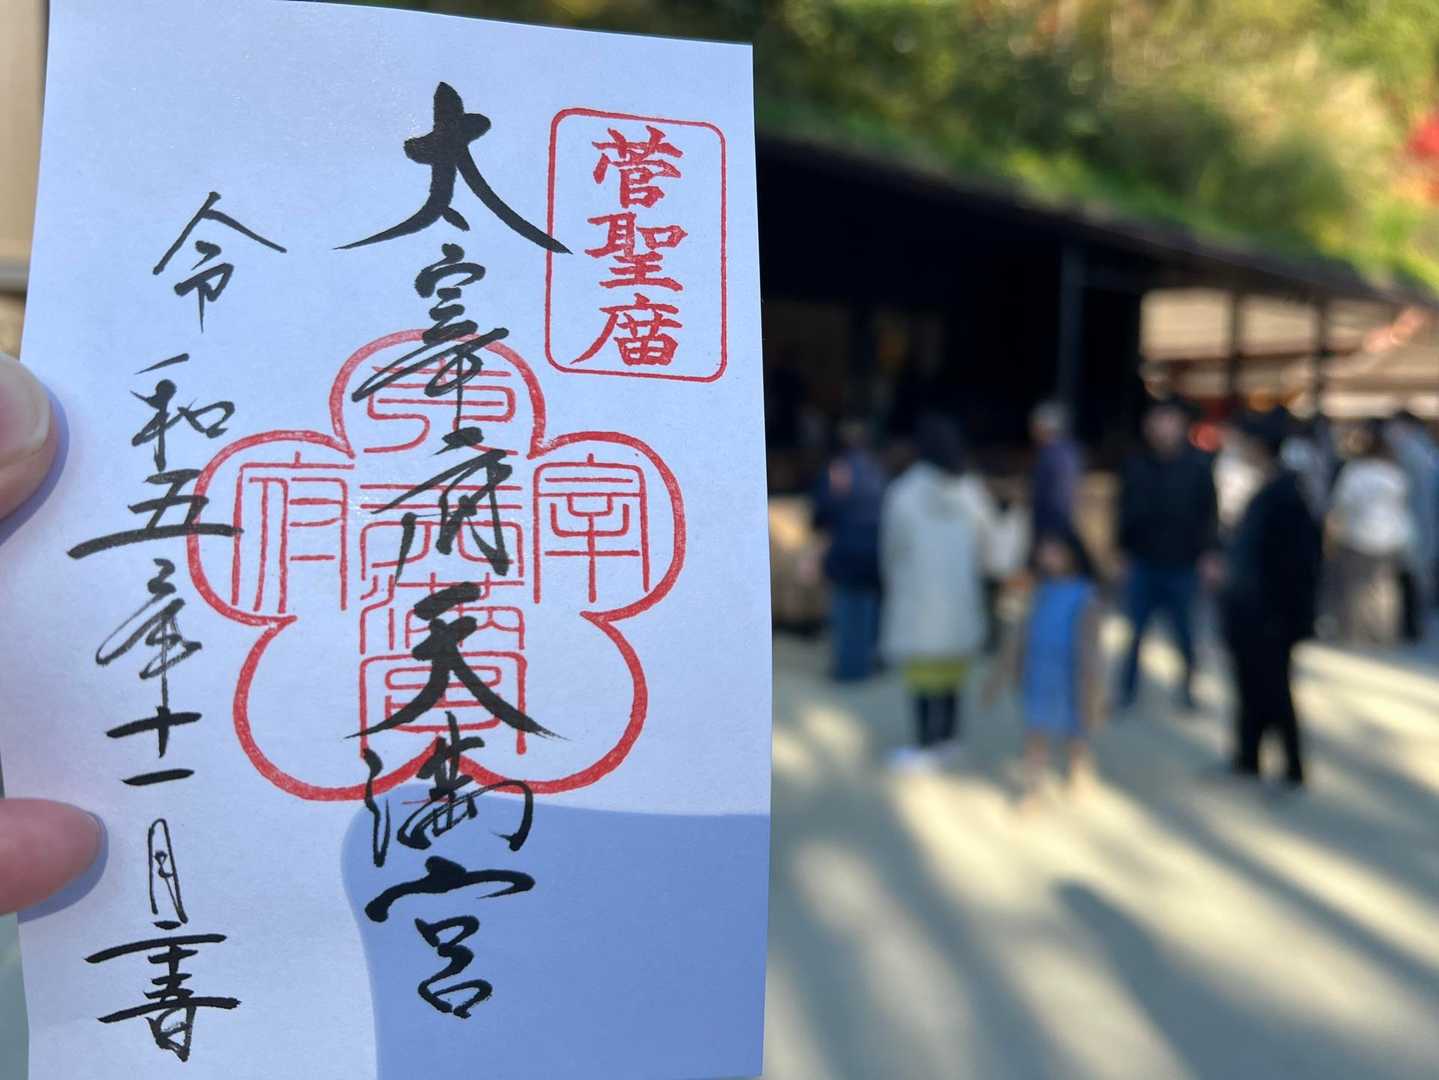 菅聖庿
太宰府天満宮
宰
府
天満宮
令和五年十一月